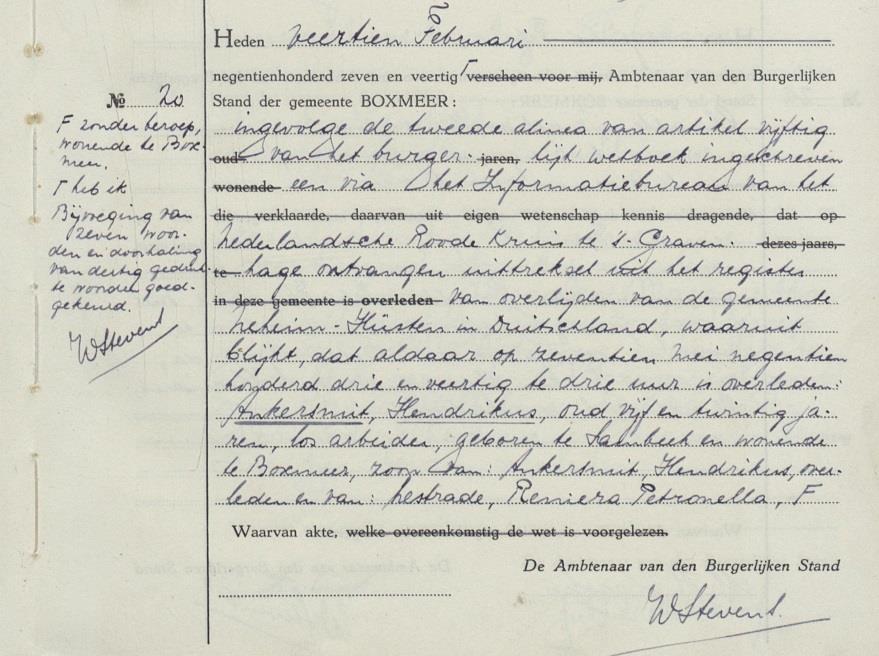 Heden veertien Februari
negentienhonderd zeven en veertig Γ verscheen voor mij, Ambtenaar van den Burgerlijken
Stand der gemeente BOXMEER:
№ 20
F zonder beroep,
wonende te Box-
meer.
Γ heb ik
Bijvoeging van
zeven woor-
den en doorhaling
van dertig gedruk-
te woorden goed-
gekeurd.
WStevens
ingevolge de tweede alinea van artikel vijftig
oud van het burger- jaren, lijk wetboek ingeschreven
wonende een via het Informatiebureau van het
die verklaarde, daarvan uit eigen wetenschap kennis dragende, dat op
Nederlandsche Roode Kruis te 's-Graven- dezes jaars,
te hage ontvangen uittreksel uit het register
in deze gemeente is overleden van overlijden van de gemeente
Neheim-Hüsten in Duitschland, waaruit
blijkt, dat aldaar op zeventien Mei negentien
honderd drie en veertig te drie uur is overleden:
Ankersmit, Hendrikus, oud vijf en twintig ja-
ren, los arbeider, geboren te Sambeek en wonende
te Boxmeer, zoon van: Ankersmit, Hendrikus, over-
leden en van: Lestrade, Reniera Petronella, F
Waarvan akte, welke overeenkomstig de wet is voorgelezen.
De Ambtenaar van den Burgerlijken Stand
WStevens